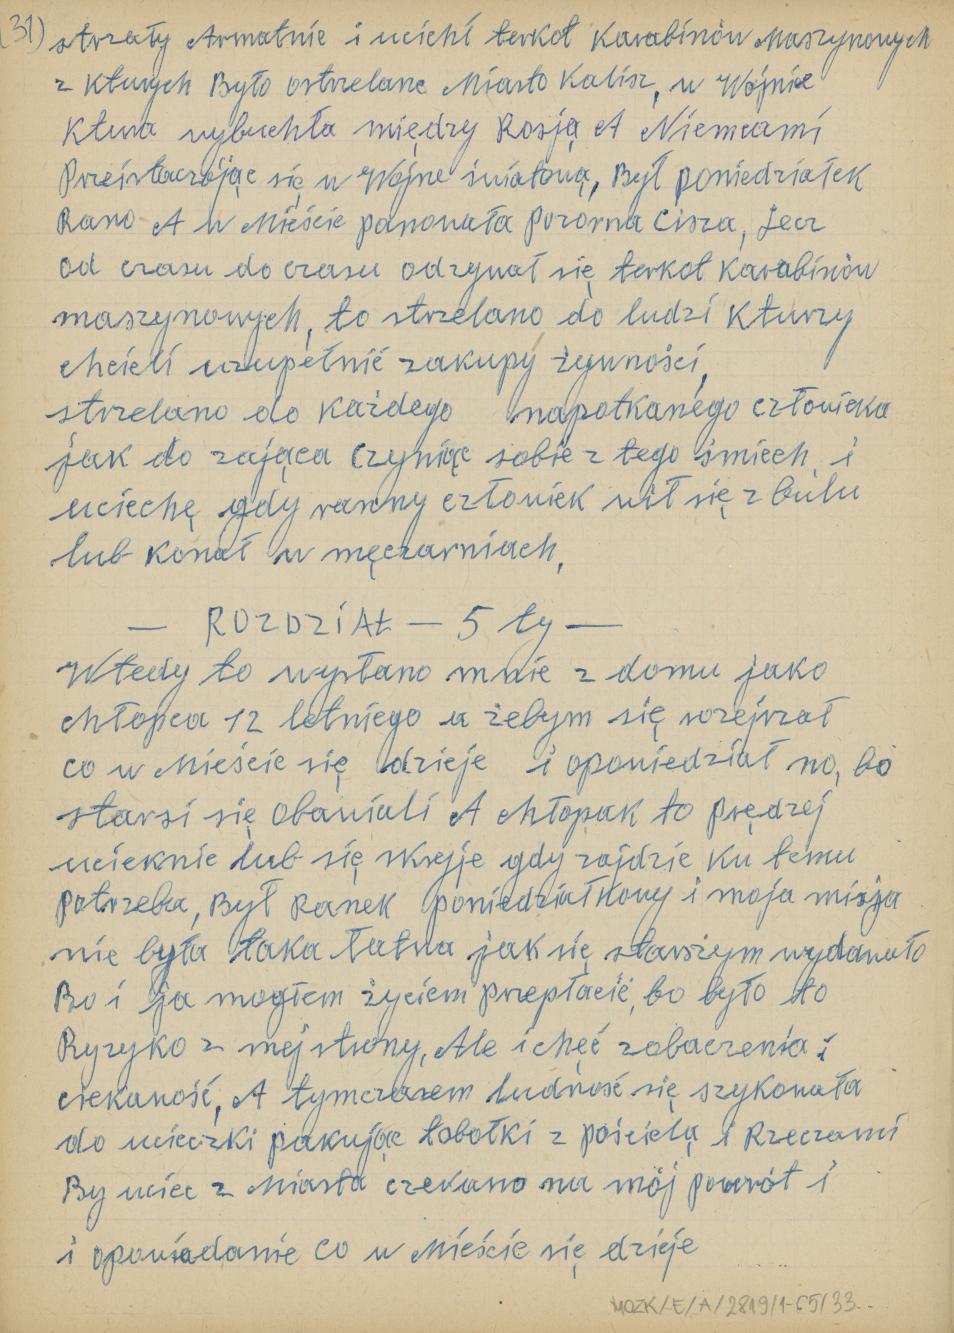 (31) strzały Armatnie i ucichł terkot Karabinów Maszynowych
z Kturych Było ostrzelane Miasto Kalisz, w Wojnie
Ktura wybuchła między Rosją A Niemcami
Przeistaczając się w Wojne światową, Był poniedziałek
Rano A w Mieście panowała Pozorna Cisza, Lecz
od czasu do czasu odzywał się terkot Karabinów
maszynowych, to strzelano do ludzi Kturzy
chcieli uzupełnić zakupy żywności,
strzelano do Każdego napotkanego człowieka
jak do zająca Czyniąc sobie z tego śmiech, i
uciechę gdy ranny człowiek wił się z bulu
lub Konał w męczarniach,
— ROZDZIAŁ — 5 ty —
Wtedy to wysłano mnie z domu jako
chłopca 12 letniego a żebym się rozejrzał
co w Mieście się dzieje i opowiedział no, bo
starsi się Obawiali A chłopak to prędzej
ucieknie lub się skryje gdy zajdzie Ku temu
potrzeba, Był Ranek poniedziałkowy i moja misja
nie była taka łatwa jak się starszym wydawało
Bo i ja mogłem życiem przepłacić, bo było to
Ryzyko z mej strony, Ale i chęć zobaczenia i
ciekawość, A tymczasem ludność się szykowała
do ucieczki pakując tobołki z pościelą i Rzeczami
By uciec z Miasta czekano na mój powrót i
i opowiadanie co w Mieście się dzieje
MOZK/E/A/2819/1-65/33